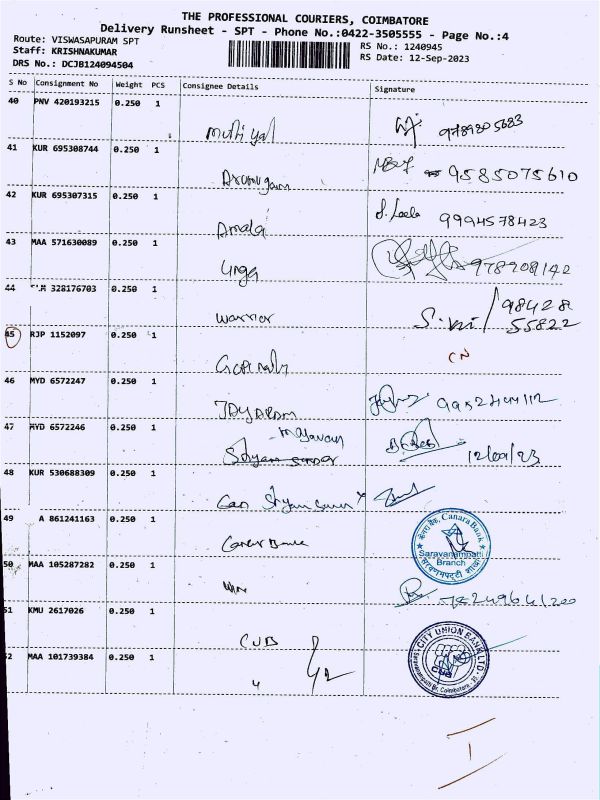 THE PROFESSIONAL COURIERS, COIMBATORE
Delivery Runsheet - SPT - Phone No.:0422-3505555 - Page No.:4
Route: VISWASAPURAM SPT
Staff: KRISHNAKUMAR
DRS No.: DCJB124094504
RS No.: 1240945
RS Date: 12-Sep-2023
S No Consignment No Weight PCS Consignee Details Signature
40 PNV 420193215 0.250 1
9789805683
41 KUR 695308744 0.250 1
Arumugam 9585075610
42 KUR 695307315 0.250 1
Amala S. Leela 9994578423
43 MAA 571630089 0.250 1
Linga 978908142
44 328176703 0.250 1
Warrior 98428
55822
45 RJP 1152097 0.250 1
Gopinath CN
46 MYD 6572247 0.250 1
JAYARAM
47 MYD 6572246 0.250 1
Mayavan
12/09/23
48 KUR 530688309 0.250 1
49 A 861241163 0.250 1
Canara Bank
Canara Bank
Saravanampatti
Branch
50 MAA 105287282 0.250 1
51 KMU 2617026 0.250 1
CUB
CITY UNION BANK LTD.
CUB
52 MAA 101739384 0.250 1
4